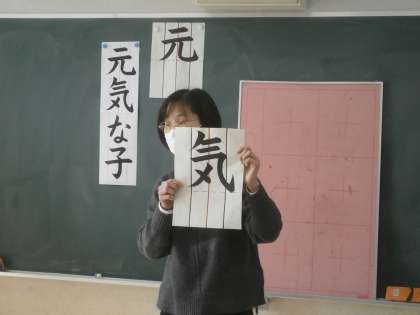 元気な子
元
気